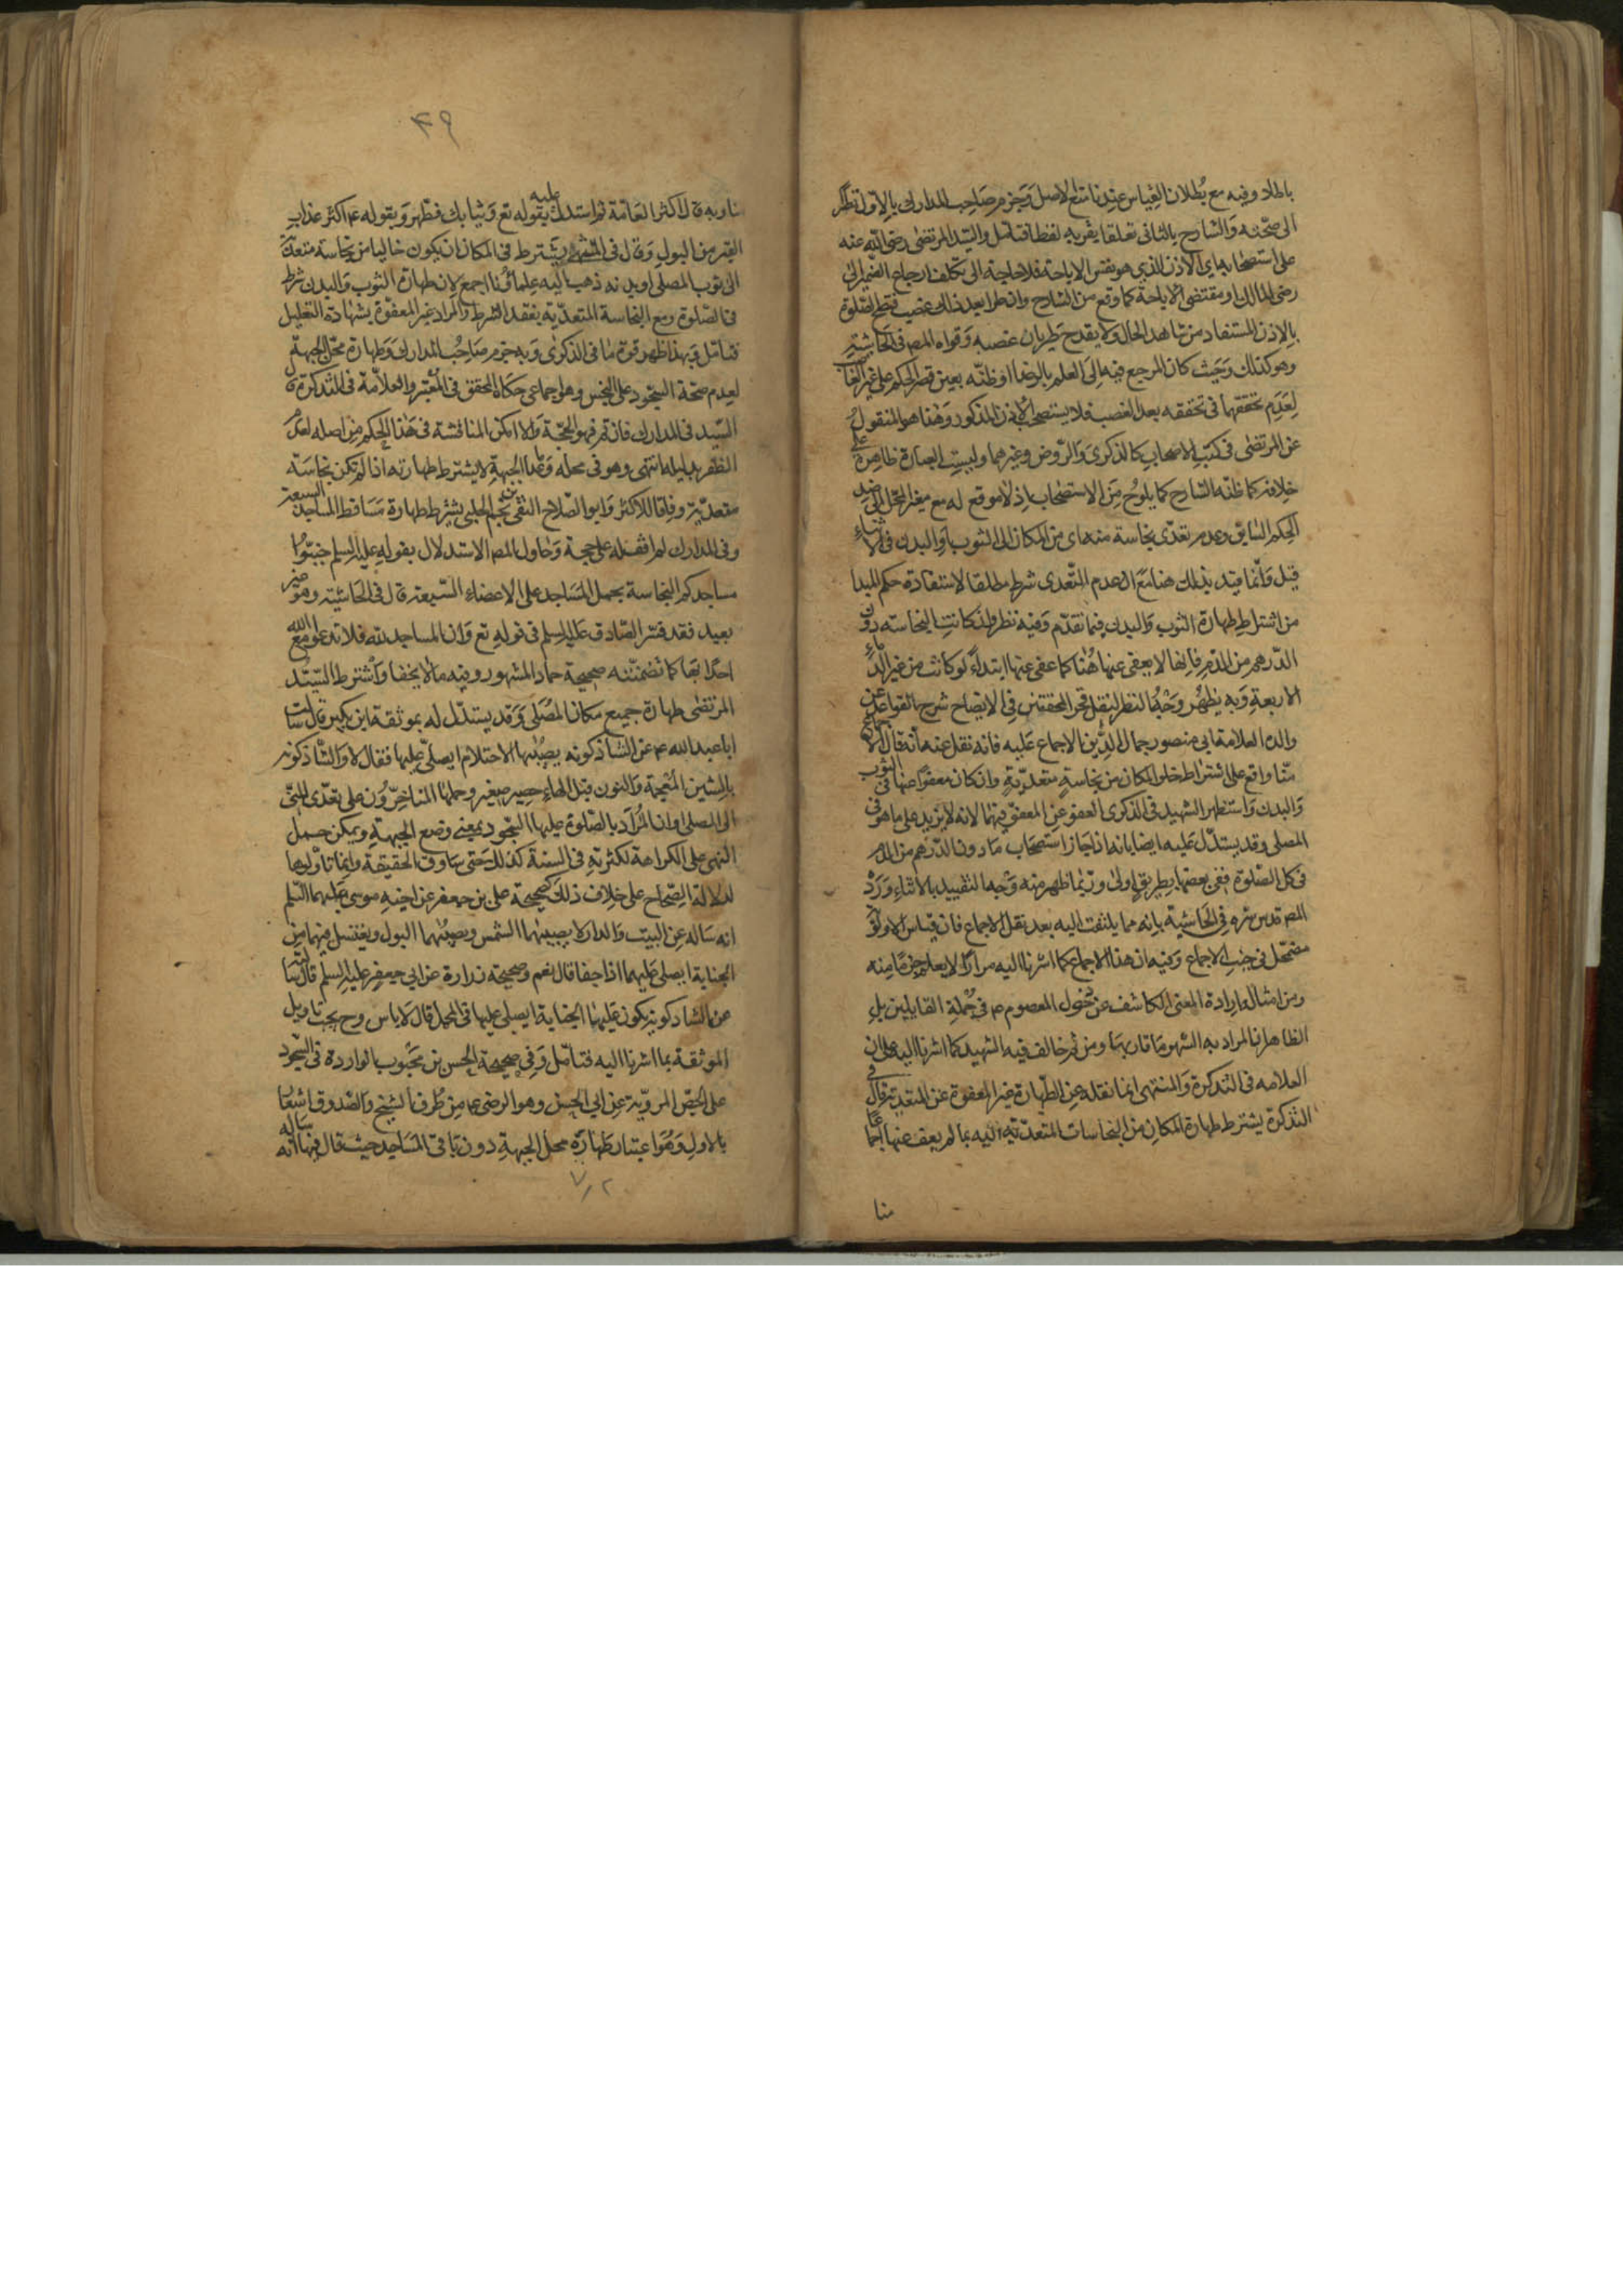 بالملاد وفيه مع بطلان القياس عندنا منع الاصل وجزم صاحب المدارك بالاول نظرا
الى صحته والشارح بالثانى تعلقا بقربه لفظا فتامل والسيد المرتضى رضى الله عنه
على استصحابه اى الاذن الذى هو مقتضى الاباحة فلا حاجة الى تكلف ارجاع الضمير الى
رضى المالك او مقتضى الاباحة كما وقع من الشارح وان طرا بعد ذلك غصب فتصح الصلوة
بالاذن المستفاد من شاهد الحال ولا يقدح طريان غصبه وقواه المصـ فى الحاشية
وهو كذلك وحيث كان المرجع فيه الى العلم بالرضا او ظنه يعين قصر الحكم على غير الغاصب
لعدم تحققهما فى تحققه بعد الغصب فلا يستصحب الاذن المذكور وهذا هو المنقول
عن المرتضى فى كتب الاصحاب كالذكرى والروض وغيرهما وليست العبارة ظاهرة على
خلافه كما ظنه الشارح كما يلوح من الاستصحاب اذ لا موقع له مع تغير المحل
الحكم السابق وعدم تعدى نجاسة منه اى من المكان الى الثوب او البدن فى الاثناء
قيل وانما قيد بذلك هنا مع ان عدم التعدى شرط مطلقا لاستفادة حكم المبدا
من اشتراط طهارة الثوب والبدن فيما تقدم وفيه نظر وان كانت النجاسة دون
الدرهم من الدم فانها لا يعفى عنها هنا كما عفى عنها ابتداء لو كانت من غير الدماء
الاربعة وبه يظهر وجه النظر لنقل فخر المحققين فى الايضاح شرح القواعد عن
والده العلامة ابى منصور جمال الدين الاجماع عليه فانه نقل عنه انه قال الاجماع
منا واقع على اشتراط خلو المكان من نجاسة متعدية وان كان معفوا عنها فى الثوب
والبدن واستظهر الشهيد فى الذكرى العفو عن المعفو فيهما لانه لا يزيد على ما هو فى
المصلى وقد يستدل عليه ايضا بانه اذا جاز استصحاب ما دون الدرهم من الدم
فى كل الصلوة ففى بعضها بطريق اولى وربما ظهر منه وجه التقييد بالاثناء ورد
المصـ قدس سره فى الحاشية بانه مما يلتفت اليه بعد نقل الاجماع فان قياس الاولوية
مضمحل فى جنب الاجماع وفيه ان هذا الاجماع كما اشرنا اليه مرارا لا يعلم جزما منه
ومن امثاله ارادة المعنى الكاشف عن دخول المعصوم عم فى جملة القايلين بل
الظاهر ان المراد به الشهرة وما قاربها ومن ثم خالف فيه الشهيد كما اشرنا اليه على ان
العلامه فى التذكرة والمنتهى انما نقله عن الطهارة غير المعفوة عن المتعدية قال فى
التذكرة يشترط طهارة المكان من النجاسات المتعدية اليه بما لم يعف عنها اجماعا
منا
٣٩
منا وبه قال اكثر العامة ثم استدل عليه بقوله تع وثيابك فطهر وبقوله عم اكثر عذاب
القبر من البول وقال فى المنتهى يشترط فى المكان ان يكون خاليا من نجاسة متعدية
الى ثوب المصلى او بدنه ذهب اليه علماؤنا اجمع لان طهارة الثوب والبدن شرط
فى الصلوة ومع النجاسة المتعدية يفقد الشرط والمراد غير المعفوة بشهادة التعليل
فتامل وبهذا ظهر قوة ما فى الذكرى وبه جزم صاحب المدارك وطهارة محل الجبهة
لعدم صحة السجود على النجس وهو اجماعى حكاه المحقق فى المعتبر والعلامة فى التذكرة قال
السيد فى المدارك فان تم فهو الحجة والا امكن المناقشة فى هذا الحكم من اصله لعدم
الظفر بدليله انتهى وهو فى محله وما عدا الجبهة لا يشترط طهارته اذا لم تكن نجاسته
متعدية وفاقا للاكثر وابو الصلاح التقى بن نجم الحلبى يشترط طهارة مساقط المساجد السبعة
وفى المدارك لم اقف له على حجة وحاول المصـ الاستدلال بقوله عليه السلم جنبوا
مساجدكم النجاسة بحمل المساجد على الاعضاء السبعة قال فى الحاشية وهو غير
بعيد فقد فسر الصادق عليه السلم فى قوله تع وان المساجد لله فلا تدعوا مع الله
احدا بها كما تضمنته صحيحة حماد المشهور وفيه ما لا يخفى واشترط السيد
المرتضى طهارة جميع مكان المصلى وقد يستدل له بموثقة ابن بكير قال سالت
ابا عبد الله عم عن الشاذكونه يصيبها الاحتلام ايصلى عليها فقال لا والشاذكونه
بالشين المعجمة والنون قبل الهاء حصير صغير وحملها المتاخرون على تعدى المنى
الى المصلى او ان المراد بالصلوة عليها السجود بمعنى وضع الجبهة ويمكن حمل
النهى على الكراهة لكثرته فى السنة كذلك حتى ساوق الحقيقة وانما تاولوها
لدلالة الصحاح على خلاف ذلك كصحيحة على بن جعفر عن اخيه موسى عليهما السلم
انه ساله عن البيت والدار لا يصيبهما الشمس ويصيبهما البول ويغتسل فيهما من
الجنابة ايصلى عليهما اذا جفا قال نعم وصحيحة زرارة عن ابى جعفر عليه السلم قال سالته
عن الشاذكونه يكون عليها الجنابة ايصلى عليها فى المحمل قال لا باس وح يجب تاويل
الموثقة بما اشرنا اليه فتامل وفى صحيحة الحسن بن محبوب الواردة فى السجود
على الجص المروية عن ابى الحسن وهو الرضى عم من طرف الشيخ والصدوق اشعار
بالاول وهو اعتبار طهارة محل الجبهة دون باقى المساجد حيث قال فيها انه ساله